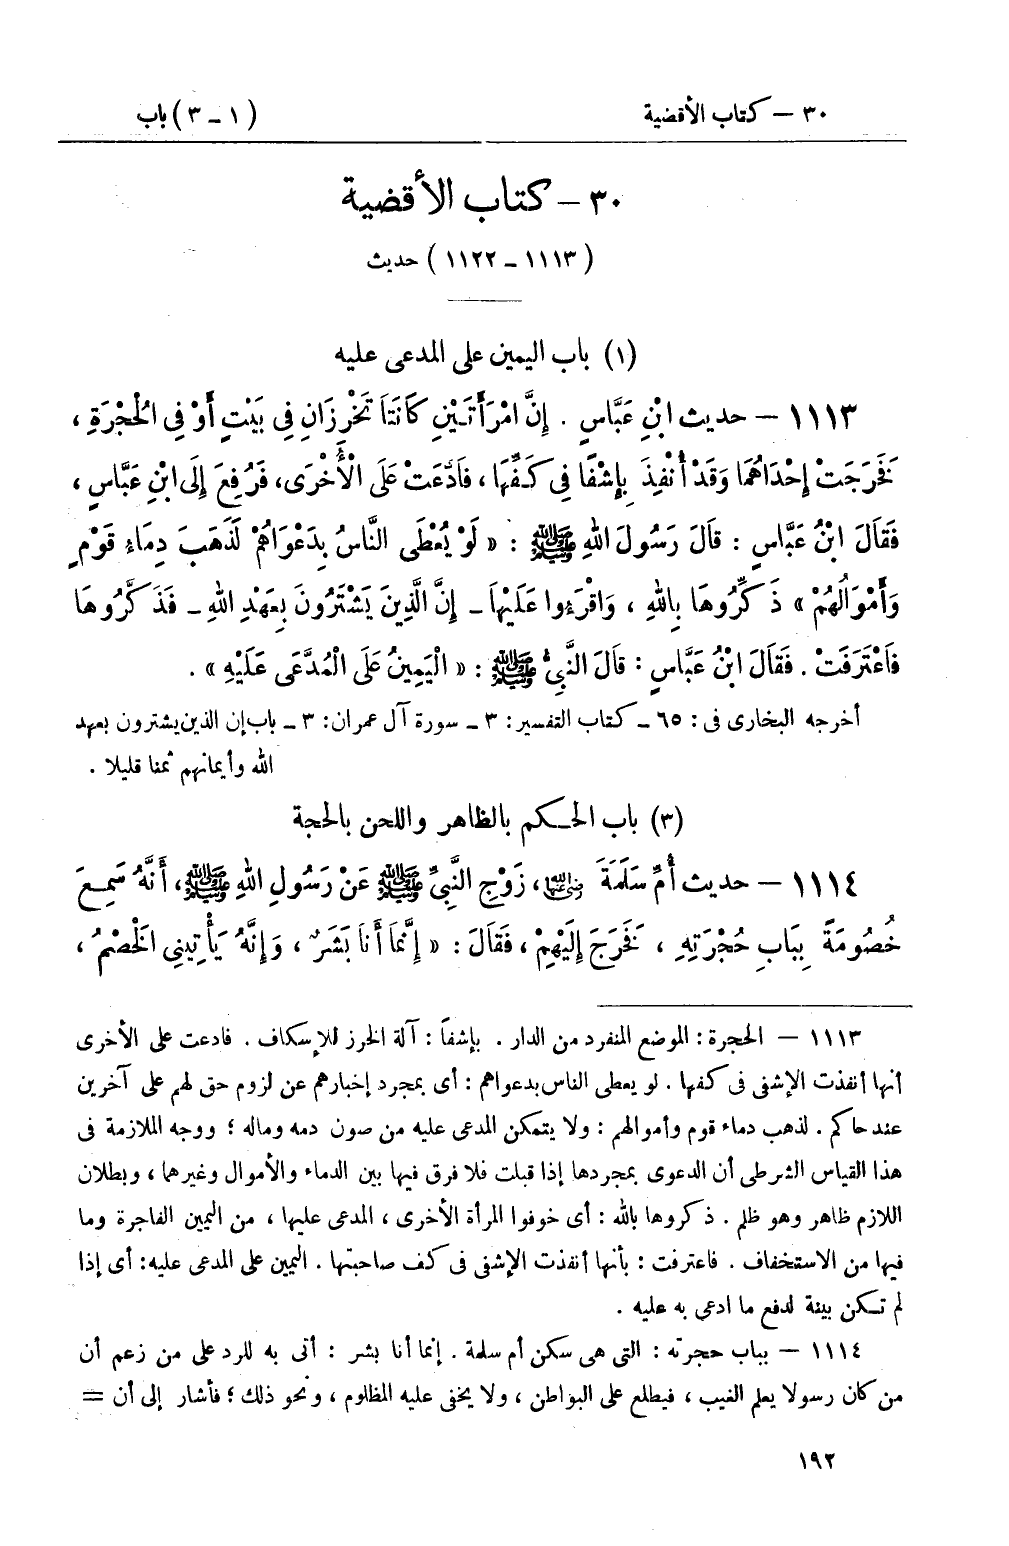 ٣٠ – كتاب الأقضية
(١ – ٣) باب
٣٠ – كتاب الأقضية
(١١١٣ – ١١٢٢) حديث
(١) باب اليمين على المدعى عليه
١١١٣ – حديث ابْنِ عَبَّاسٍ . إِنَّ امْرَأَتَيْنِ كَانَتَا تَخْرِزَانِ فِى بَيْتٍ أَوْ فِى الْحُجْرَةِ ،
فَخَرَجَتْ إِحْدَاهُمَا وَقَدْ أُنْفِذَ بِإِشْفًا فِى كَفِّهَا ، فَادَّعَتْ عَلَى الْأُخْرَى، فَرُفِعَ إِلَى ابْنِ عَبَّاسٍ ،
فَقَالَ ابْنُ عَبَّاسٍ : قَالَ رَسُولَ اللهِ ﷺ : « لَوْ يُعْطَى النَّاسُ بِدَعْوَاهُمْ لَذَهَبَ دِمَاءُ قَوْمٍ
وَأَمْوَالُهُمْ » ذَكِّرُوهَا بِاللهِ ، وَاقْرَءُوا عَلَيْهَا – إِنَّ الَّذِينَ يَشْتَرُونَ بِعَهْدِ اللهِ – فَذَكَّرُوهَا
فَاعْتَرَفَتْ . فَقَالَ ابْنُ عَبَّاسٍ : قَالَ النَّبِىُّ ﷺ : « الْيَمِينُ عَلَى الْمُدَّعَى عَلَيْهِ » .
أخرجه البخارى فى : ٦٥ – كتاب التفسير : ٣ – سورة آل عمران : ٣ – باب إن الذين يشترون بعهد
الله وأيمانهم ثمنا قليلا .
(٣) باب الحكم بالظاهر واللحن بالحجة
١١١٤ – حديث أُمِّ سَلَمَةَ رضي الله عنها، زَوْجِ النَّبِىِّ ﷺ عَنْ رَسُولِ اللهِ ﷺ، أَنَّهُ سَمِعَ
خُصُومَةً بِبَابِ حُجْرَتِهِ ، فَخَرَجَ إِلَيْهِمْ ، فَقَالَ : « إِنَّمَا أَنَا بَشَرٌ ، وَإِنَّهُ يَأْتِينِى الْخَصْمُ ،
١١١٣ – الحجرة : الموضع المنفرد من الدار . بإشفاً : آلة الخرز للإسكاف . فادعت على الأخرى
أنها أنفذت الإشفى فى كفها . لو يعطى الناس بدعواهم : أى بمجرد إخبارهم عن لزوم حق لهم على آخرين
عند حاكم . لذهب دماء قوم وأموالهم : ولا يتمكن المدعى عليه من صون دمه وماله ؛ ووجه الملازمة فى
هذا القياس الشرطى أن الدعوى بمجردها إذا قبلت فلا فرق فيها بين الدماء والأموال وغيرهما ، وبطلان
اللازم ظاهر وهو ظلم . ذكروها بالله : أى خوفوا المرأة الأخرى ، المدعى عليها ، من اليمين الفاجرة وما
فيها من الاستخفاف . فاعترفت : بأنها أنفذت الإشفى فى كف صاحبتها . اليمين على المدعى عليه : أى إذا
لم تكن بينة لدفع ما ادعى به عليه .
١١١٤ – بباب حجرته : التى هى سكن أم سلمة . إنما أنا بشر : أتى به للرد على من زعم أن
من كان رسولا يعلم الغيب ، فيطلع على البواطن ، ولا يخفى عليه المظلوم ، ونحو ذلك ؛ فأشار إلى أن =
١٩٢